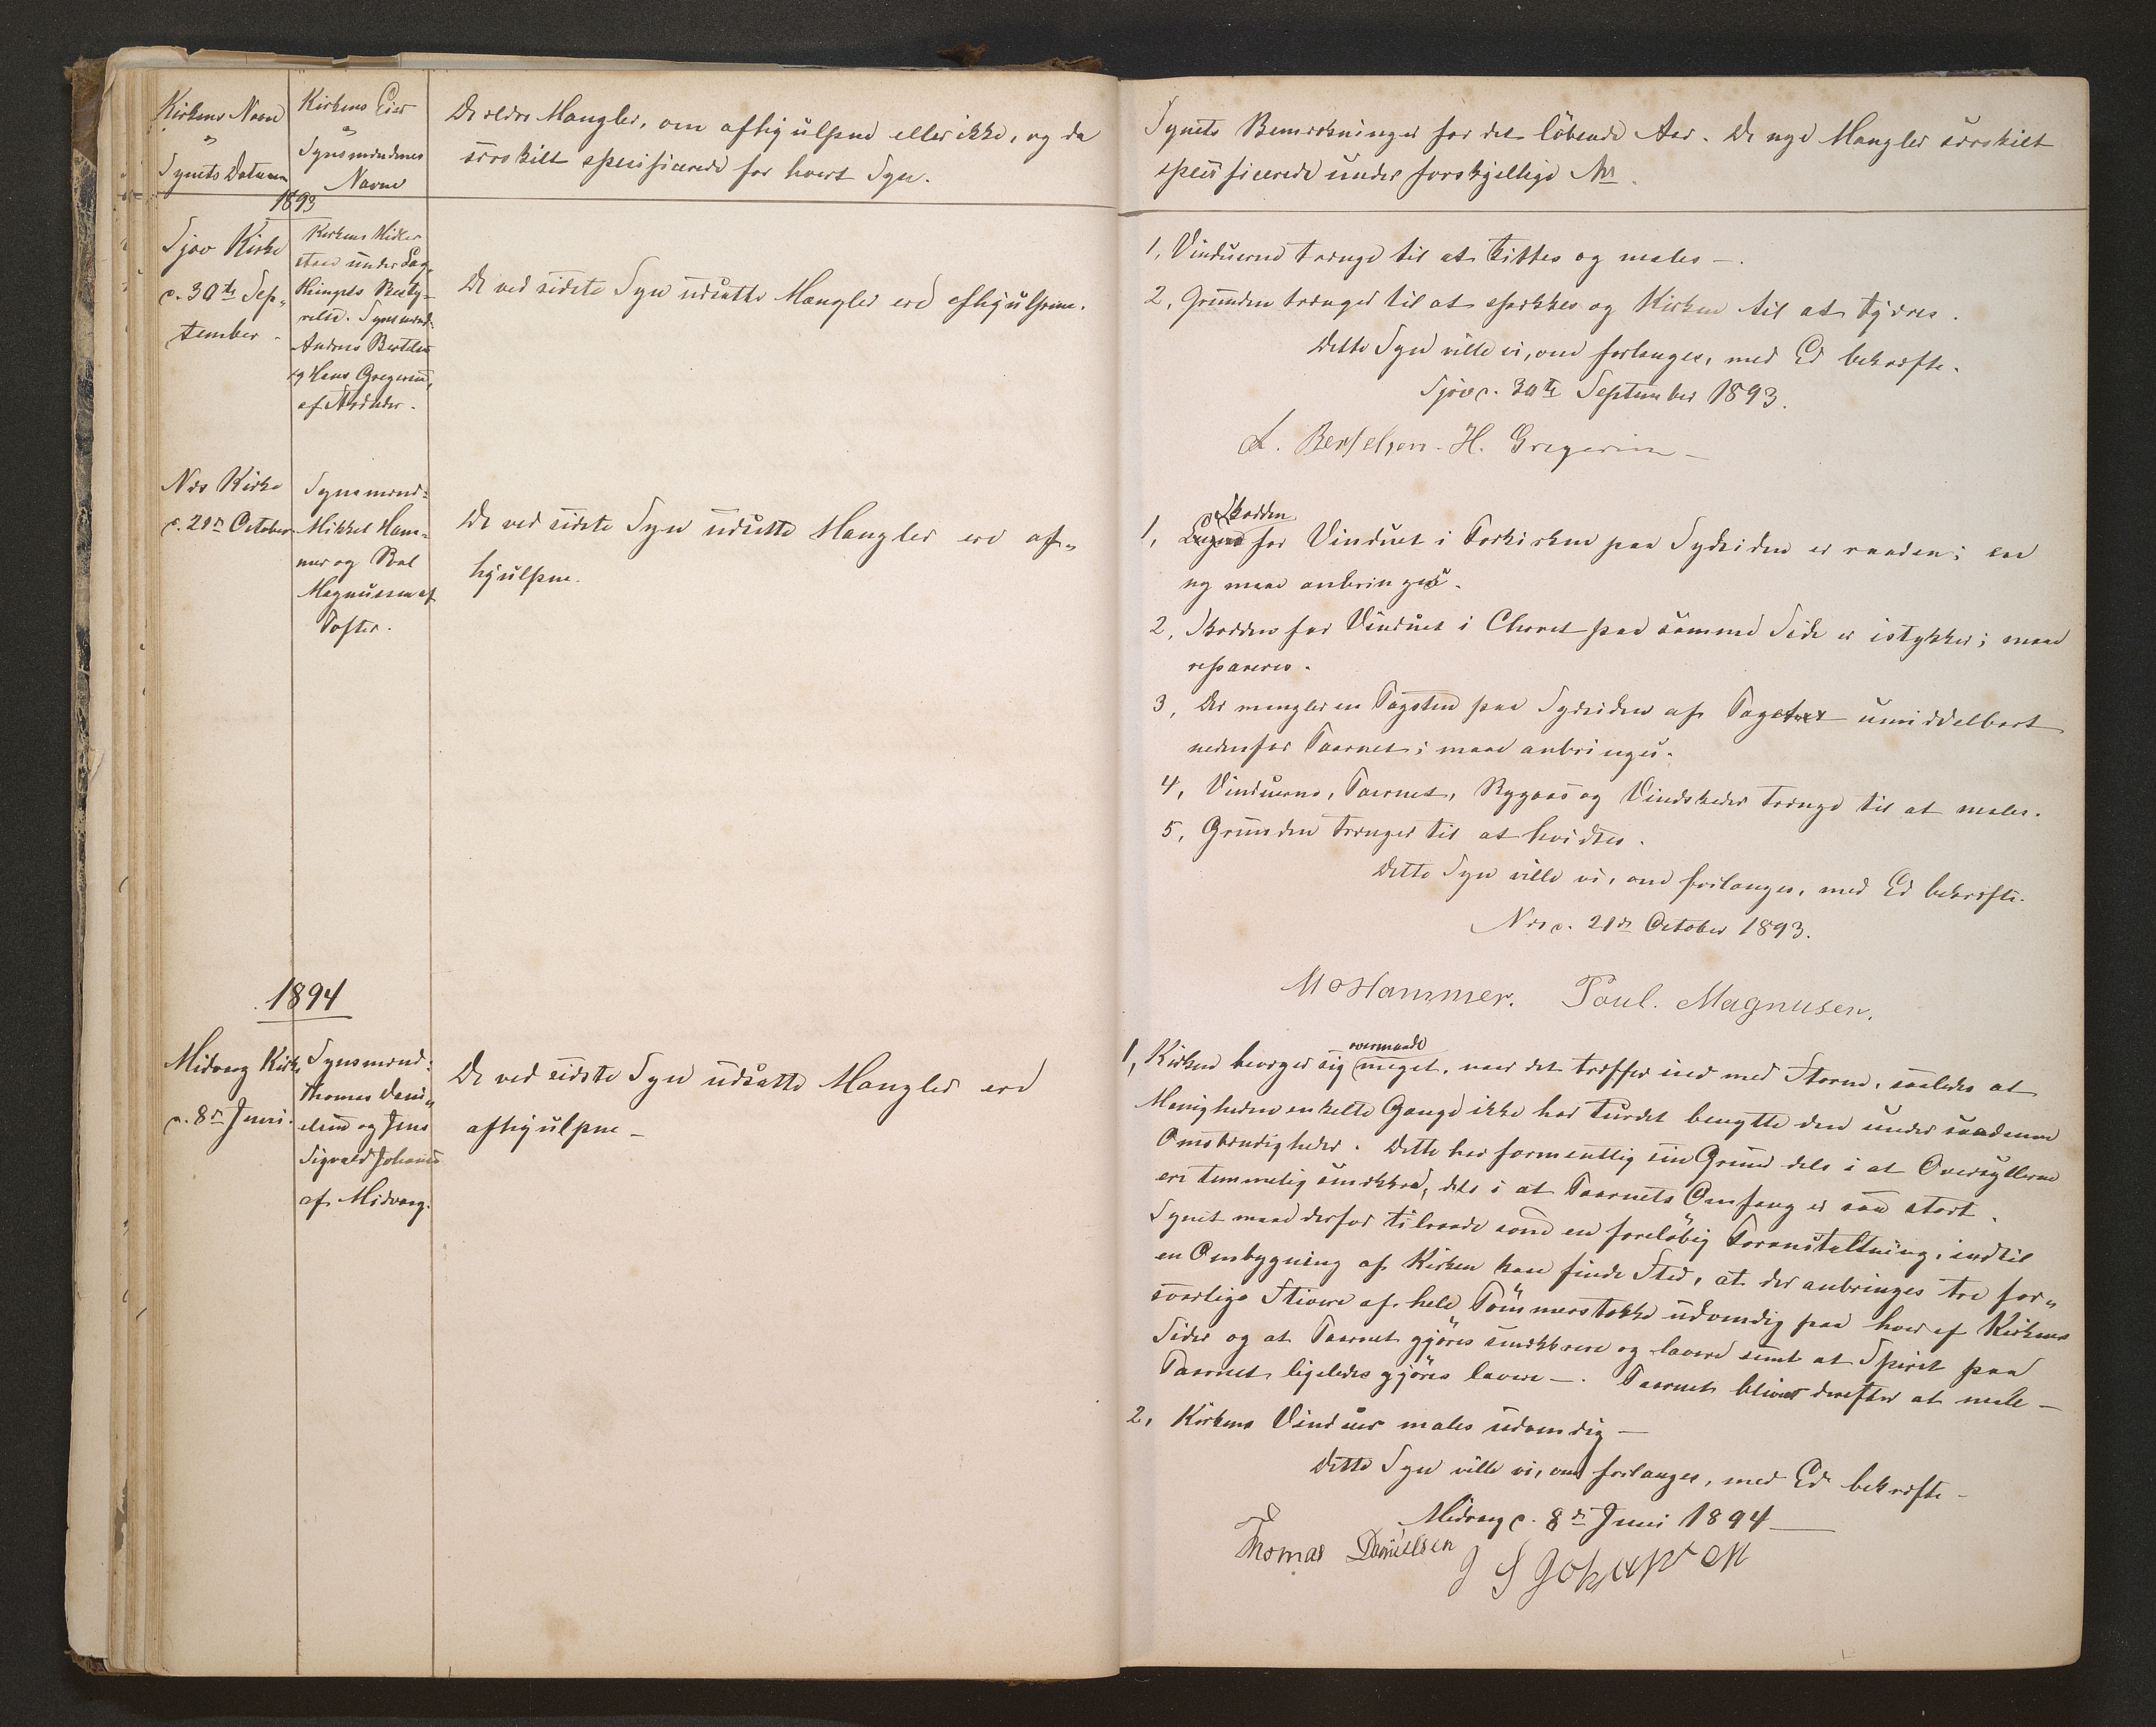 Kirkens Navn
"
Synets Datum
Kirkens Eier
"
Synsmændenes
Navne
De ældre Mangler, om afhjulpne eller ikke, og da
særskilt specificerede for hvert Syn.
1893
Kirke
d. 30te Sep-
tember.
Kirkens Midler
staae under Lag-
thingets Besty-
relse. Synsmænd:
Andreas Bertelsen
og Hans Gregersen,
af
De ved sidste Syn udsatte Mangler ere afhjulpne.
Næs Kirke
d. 21de October
Synsmænd:
Mikkel Ham-
mer og Poul
Magnussen af
Tofter.
De ved sidste Syn udsatte Mangler ere af-
hjulpne.
1894
Midvaag Kirke
d. 8de Juni.
Synsmænd:
Thomas Dani-
elsen og Jens
Sigvald Johansen
af Midvaag.
De ved sidste Syn udsatte Mangler ere
afhjulpne –
Synets Bemærkninger for det löbende Aar. De nye Mangler særskilt
specificerede under forskjellige Nr.
1, Vinduerne trænge til at kittes og males –.
2, Grunden trænger til at spækkes og Kirken til at tjæres.
Dette Syn ville vi, om forlanges, med Ed bekræfte.
d. 30te September 1893.
A. Bertelsen. H. Gregersen –
Skodden
1, for Vinduet i Forkirken paa Sydsiden er raaden; en
ny maa anbringes.
2, Skodden for Vinduet i Choret paa samme Side er istykker; maa
repareres.
3, Der mangler en Tagsten paa Sydsiden af Taget umiddelbart
nedenfor Taarnet; maa anbringes.
4, Vinduerne, Taarnet, Rygaas og Vindskeder trænge til at males.
5, Grunden trænger til at hvidtes.
Dette Syn ville vi, om forlanges, med Ed bekræfte.
Næs d. 21de October 1893.
M O Hammer. Poul. Magnusen.
overmaade
1, Kirken bevæger sig meget, naar det træffer ind med Storm, saaledes at
Menigheden enkelte Gange ikke har turdet benytte den under saadanne
Omstændigheder. Dette har formentlig sin Grund dels i at Oversyllerne
ere temmelig smække, dels i at Taarnets Omfang er saa stort.
Synet maa derfor tilraade som en foreløbig Foranstaltning, indtil
en Ombygning af Kirken kan finde Sted, at der anbringes tre for-
svarlige Stivere af hele Tömmerstokke udvendig paa hver af Kirkens
Sider og at Taarnet gjöres smækkrere og lavere samt at Spiret paa
Taarnet ligeledes gjöres lavere –. Taarnet bliver derefter at male –
2, Kirkens Vinduer males udvendig –
Dette Syn ville vi, om forlanges, med Ed bekræfte –
Midvaag d. 8de Juni 1894 –
Thomas Danielsen J S Johansen